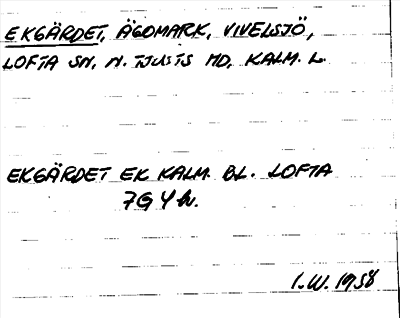 EKGÄRDET, ÄGOMARK, VIVELSJÖ,
LOFTA SN, N. TJUSTS HD, KALM. L.
EKGÄRDET EK KALM. BL. LOFTA
7G 4 h.
I.W. 1958